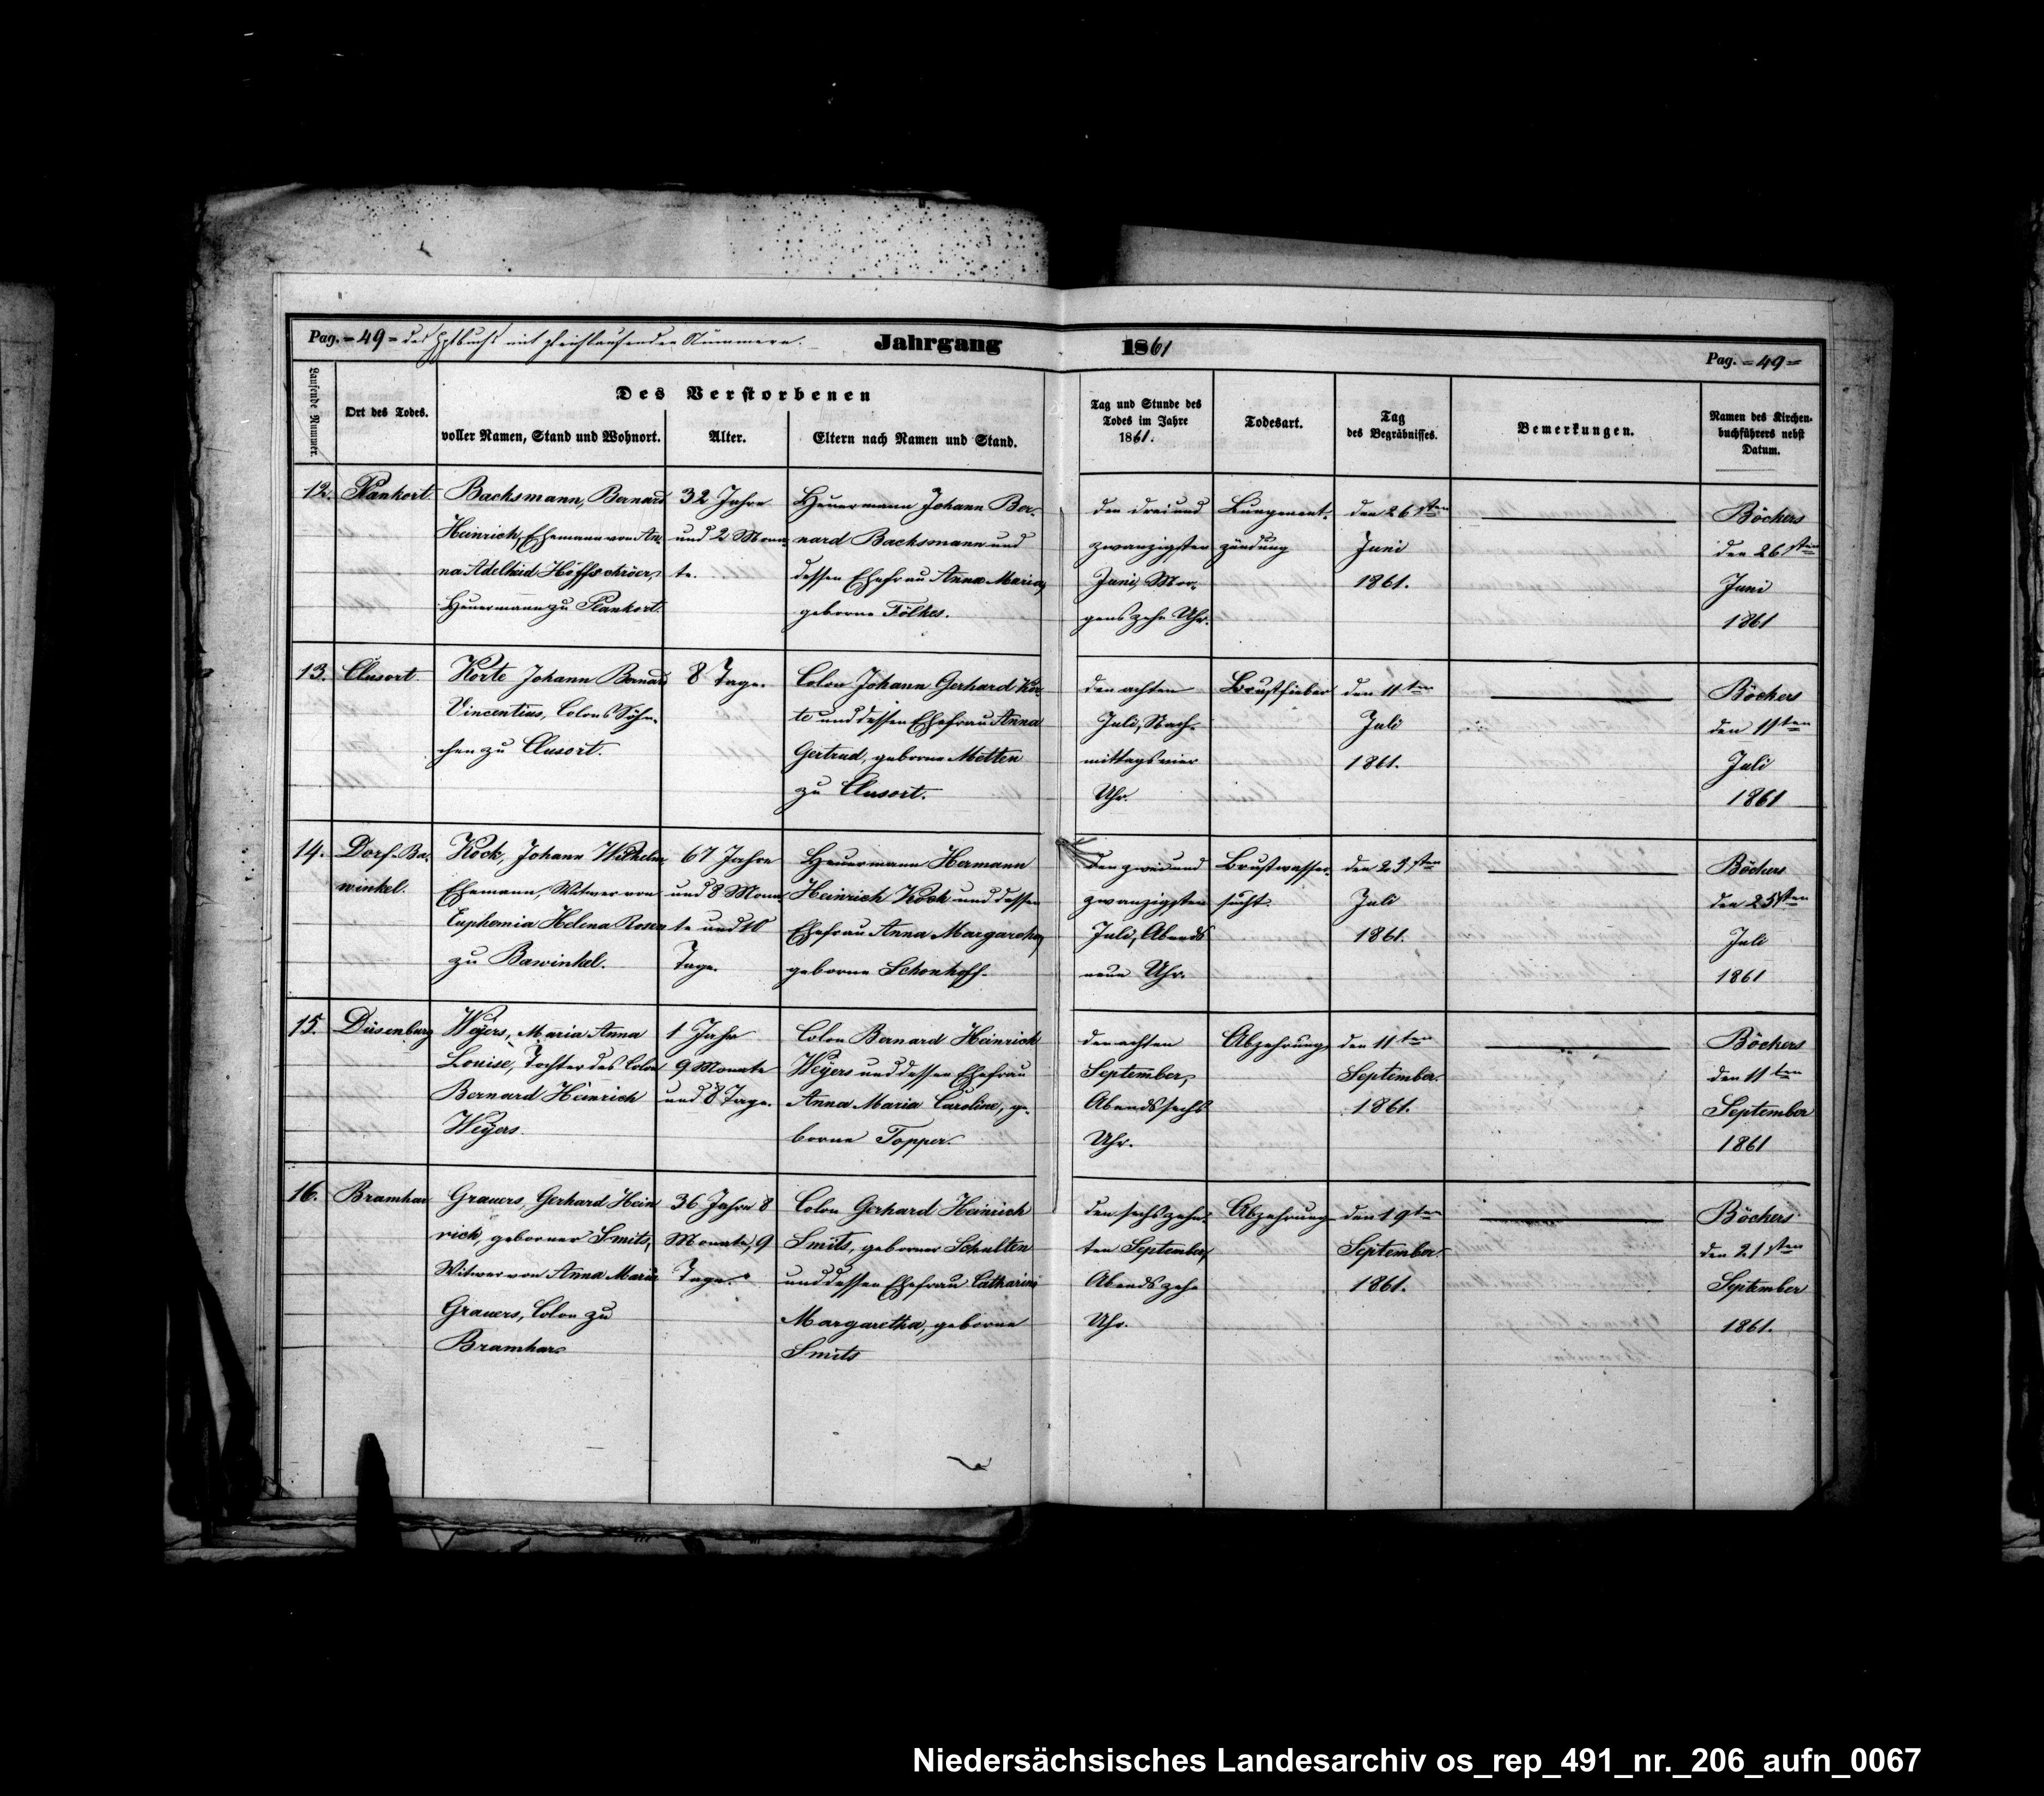 Pag. = 49 = des Hptbuchs mit gleichlaufenden Nummern. Jahrgang 1861 Pag. = 49 =
Laufende Nummer.
Ort des Todes.
Des Verstorbenen
voller Namen, Stand und Wohnort.
Alter.
Eltern nach Namen und Stand.
Tag und Stunde des
Todes im Jahre
1861.
Todesart.
Tag
des Begräbnisses.
Bemerkungen.
Namen des Kirchen-
buchführers nebst
Datum.
12.
Plankort.
Backsmann, Bernard
Heinrich, Ehemann von An-
na Adelheid Höffschröer,
Heuermann zu Plankort.
32 Jahre
und 2 Mona-
te.
Heuermann Johann Ber-
nard Backsmann und
dessen Ehefrau Anna Maria,
geborne Fölkes.
den drei und
zwanzigsten
Juni, Mor-
gens zehn Uhr.
Lungenent-
zündung
den 26sten
Juni
1861.
Böckers
den 26sten
Juni
1861
13.
Clusort
Körte Johann Bernard
Vincentius, Colons Söhn-
chen zu Clusort.
8 Tage.
Colon Johann Gerhard Kör-
te und dessen Ehefrau Anna
Gertrud, geborne Metten
zu Clusort.
den achten
Juli, Nach-
mittags vier
Uhr.
Brustfieber
den 11ten
Juli
1861.
Böckers
den 11ten
Juli
1861
14.
Dorf-Ba-
winkel.
Kock, Johann Wilhelm
Ehemann, Witwer von
Euphemia Helena Rosen
zu Bawinkel.
67 Jahre
und 8 Mona-
te und 10
Tage.
Heuermann Hermann
Heinrich Kock und dessen
Ehefrau Anna Margaretha,
geborne Schonhoff.
den zwei und
zwanzigsten
Juli, Abends
neun Uhr.
Brustwasser-
sucht.
den 25sten
Juli
1861.
Böckers
den 25sten
Juli
1861
15.
Düsenburg
Weyers, Maria Anna
Louise, Tochter des Colon
Bernard Heinrich
Weyers.
1 Jahr
9 Monate
und 8 Tage.
Colon Bernard Heinrich
Weyers und dessen Ehefrau
Anna Maria Caroline, ge-
borne Topper.
den achten
September,
Abends sechs
Uhr.
Abzehrung
den 11ten
September.
1861.
Böckers
den 11ten
September
1861
16.
Bramhar
Grauers, Gerhard Hein
rich, geborner Smits,
Witwer von Anna Maria
Grauers, Colon zu
Bramhar
36 Jahre 8
Monate, 9
Tage.
Colon Gerhard Heinrich
Smits, geborner Schulten
und dessen Ehefrau Catharina
Margaretha, geborne
Smits
den sechszehn-
ten September,
Abends zehn
Uhr.
Abzehrung
den 19ten
September.
1861.
Böckers
den 21sten
September
1861.
Niedersächsisches Landesarchiv os_rep_491_nr._206_aufn_0067